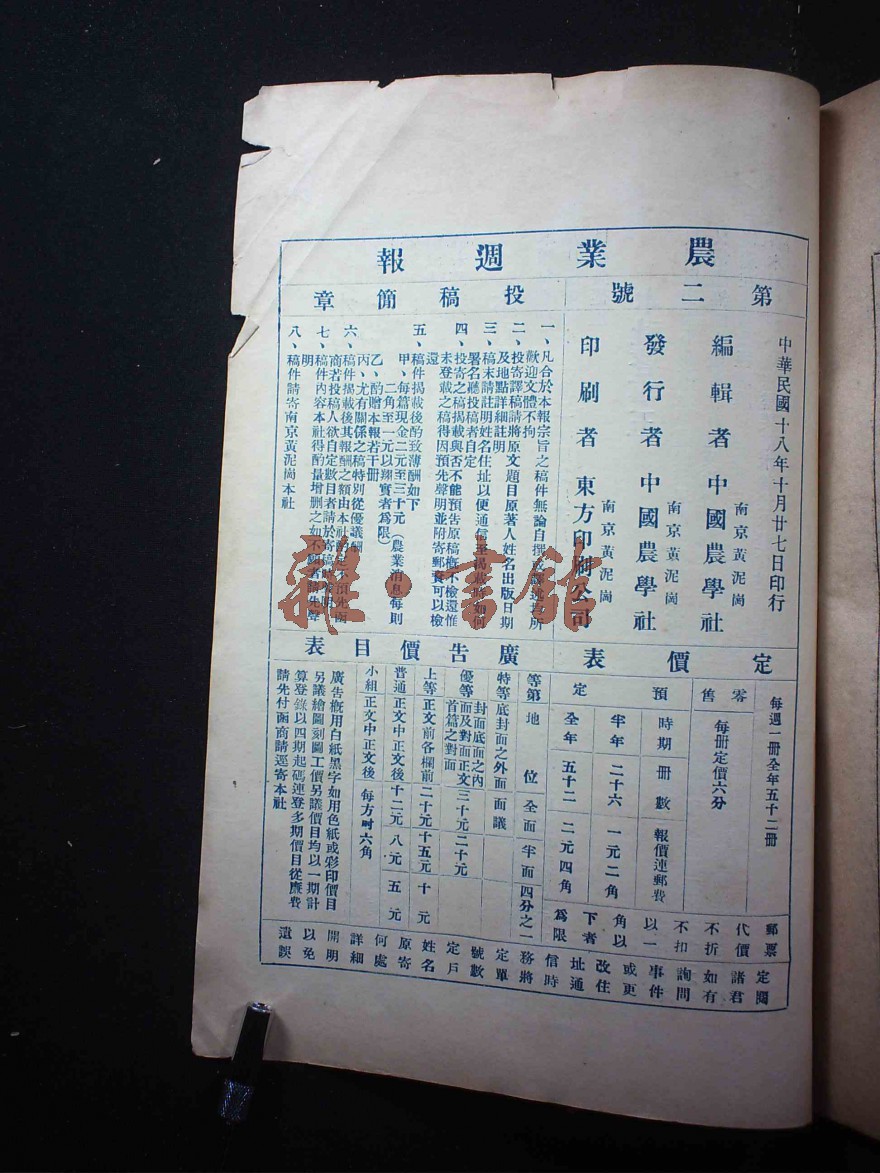 農業週報
第二號
中華民國十八年十月廿七日印行
編輯者 中國農學社
南京黃泥崗
發行者 中國農學社
南京黃泥崗
印刷者 東方印刷公司
投稿簡章
一、凡合於本報宗旨之稿件無論自撰或譯述均所
歡迎文體不拘
二、投寄譯稿請將原文題目原著人姓名出版日期
及地點詳細註明
三、稿末請註明姓名住址以便通信至揭載時如何
署名聽投稿者自定
四、投寄之稿揭載與否不能預告原稿概不檢還惟
未登載之稿得因預先聲明並附寄郵費可以檢
還
五、稿件揭載後酌致薄酬如下
甲、每篇現金二元至三十元（農業消息每則
二角至一元以翔實者爲限）
乙、酌贈本報若干冊
丙、尤有關係之稿特別從優議酬
六、稿件揭載後其報酬之額由本社酌定不預先函
商若投稿人欲自定數目者請於寄稿時聲明
七、稿件內容本社得酌量增删之如不願者請先聲
明
八、稿件請寄南京黃泥崗本社
定價表
每週一冊全年五十二冊
零售 每冊定價六分
預定
時期 冊數 報價連郵費
半年 二十六 一元二角
全年 五十二 二元四角
郵票代價不折不扣以一角以下者爲限
廣告價目表
等第 地位 全面 半面 四分之一
特等 底封面之外面 面議
優等 封面底面之內面及對面正文首篇之對面 三十元 二十元
上等 正文前各欄前 二十元 十五元 十元
普通 正文中正文後 十二元 八元 五元
小組 正文中正文後 每方吋六角
廣告概用白紙黑字如用色紙或彩印價目
另議繪圖刻圖工價另議價目均以一期計
算登錄以四期起碼連登多期價目從廉費
請先付函商請逕寄本社
定閱諸君如有詢問事件或更改住址通信時務將定單號數定戶姓名原寄何處詳細開明以免遺誤
雜·書館